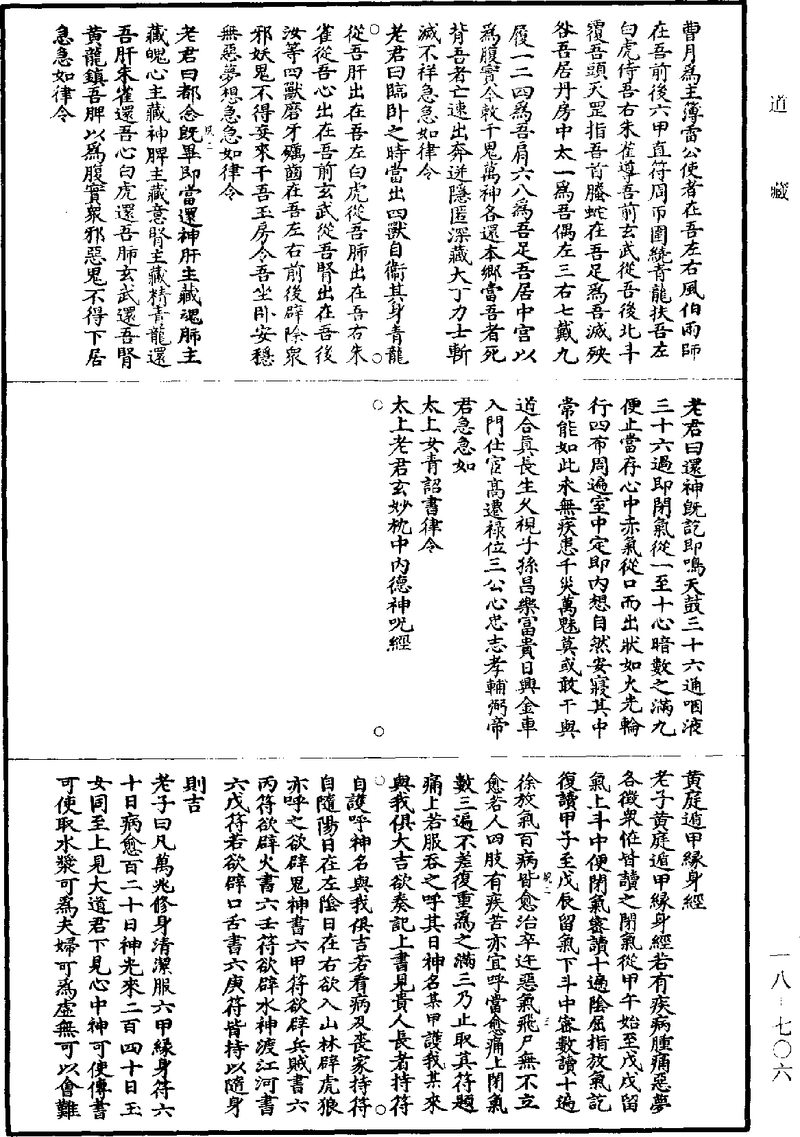 道藏
曹月為主簿雷公使者在吾左右風伯雨師
在吾前後六甲直符周帀圍繞青龍扶吾左
白虎侍吾右朱雀導吾前玄武從吾後北斗
覆吾頭天罡指吾首螣蛇在吾足為吾滅殃
咎吾居丹房中太一為吾偶左三右七戴九
履一二四為吾肩六八為吾足吾居中宮以
為腹實今敕千鬼萬神各還本鄉當吾者死
背吾者亡速出奔迸隱匿深藏大丁力士斬
滅不祥急急如律令
老君曰臨卧之時當出四獸自衞其身青龍
從吾肝出在吾左白虎從吾肺出在吾右朱
雀從吾心出在吾前玄武從吾腎出在吾後
汝等四獸磨牙礪齒在吾左右前後辟除衆
邪妖鬼不得妄來干吾玉房令吾坐卧安穩
無惡夢想急急如律令
老君曰都念旣畢即當還神肝主藏魂肺主
藏魄心主藏神脾主藏意腎主藏精青龍還
吾肝朱雀還吾心白虎還吾肺玄武還吾腎
黃龍鎮吾脾以為腹實衆邪惡鬼不得下居
急急如律令
老君曰還神旣訖即鳴天鼓三十六通咽液
三十六過即閉氣從一至十心暗數之滿九
便止當存心中赤氣從口而出狀如火光輪
行四布周遍室中定即內想自然安寢其中
常能如此永無疾患千災萬魅莫或敢干與
道合真長生久視子孫昌樂富貴日興金車
入門仕宦高遷祿位三公心忠志孝輔弼帝
君急急如
太上女青詔書律令
太上老君玄妙枕中內德神呪經
黃庭遁甲緣身經
老子黃庭遁甲緣身經若有疾病腫痛惡夢
各徵衆怪皆讀之閉氣從甲午始至戊戌留
氣上斗中便閉氣審讀十遍陰屈指放氣訖
復讀甲子至戊辰留氣下斗中審數讀十遍
徐放氣百病皆愈治卒迕惡氣飛尸無不立
愈若人四肢有疾苦亦宜呼當愈痛上閉氣
數三遍不差復重為之滿三乃止取其符題
痛上若服吞之呼其日神名某甲護我某來
與我俱大吉欲奏記上書見貴人長者持符
自護呼神名與我俱吉若看病及喪家持符
自隨陽日在左陰日在右欲入山林辟虎狼
亦呼之欲辟鬼神書六甲符欲辟兵賊書六
丙符欲辟火書六壬符欲辟水神渡江河書
六戊符若欲辟口舌書六庚符皆持以隨身
則吉
老子曰凡萬兆修身清潔服六甲緣身符六
十日病愈百二十日神光來二百四十日玉
女同至上見大道君下見心中神可使傳書
可使取水漿可為夫婦可為虛無可以會難
一八－七〇六